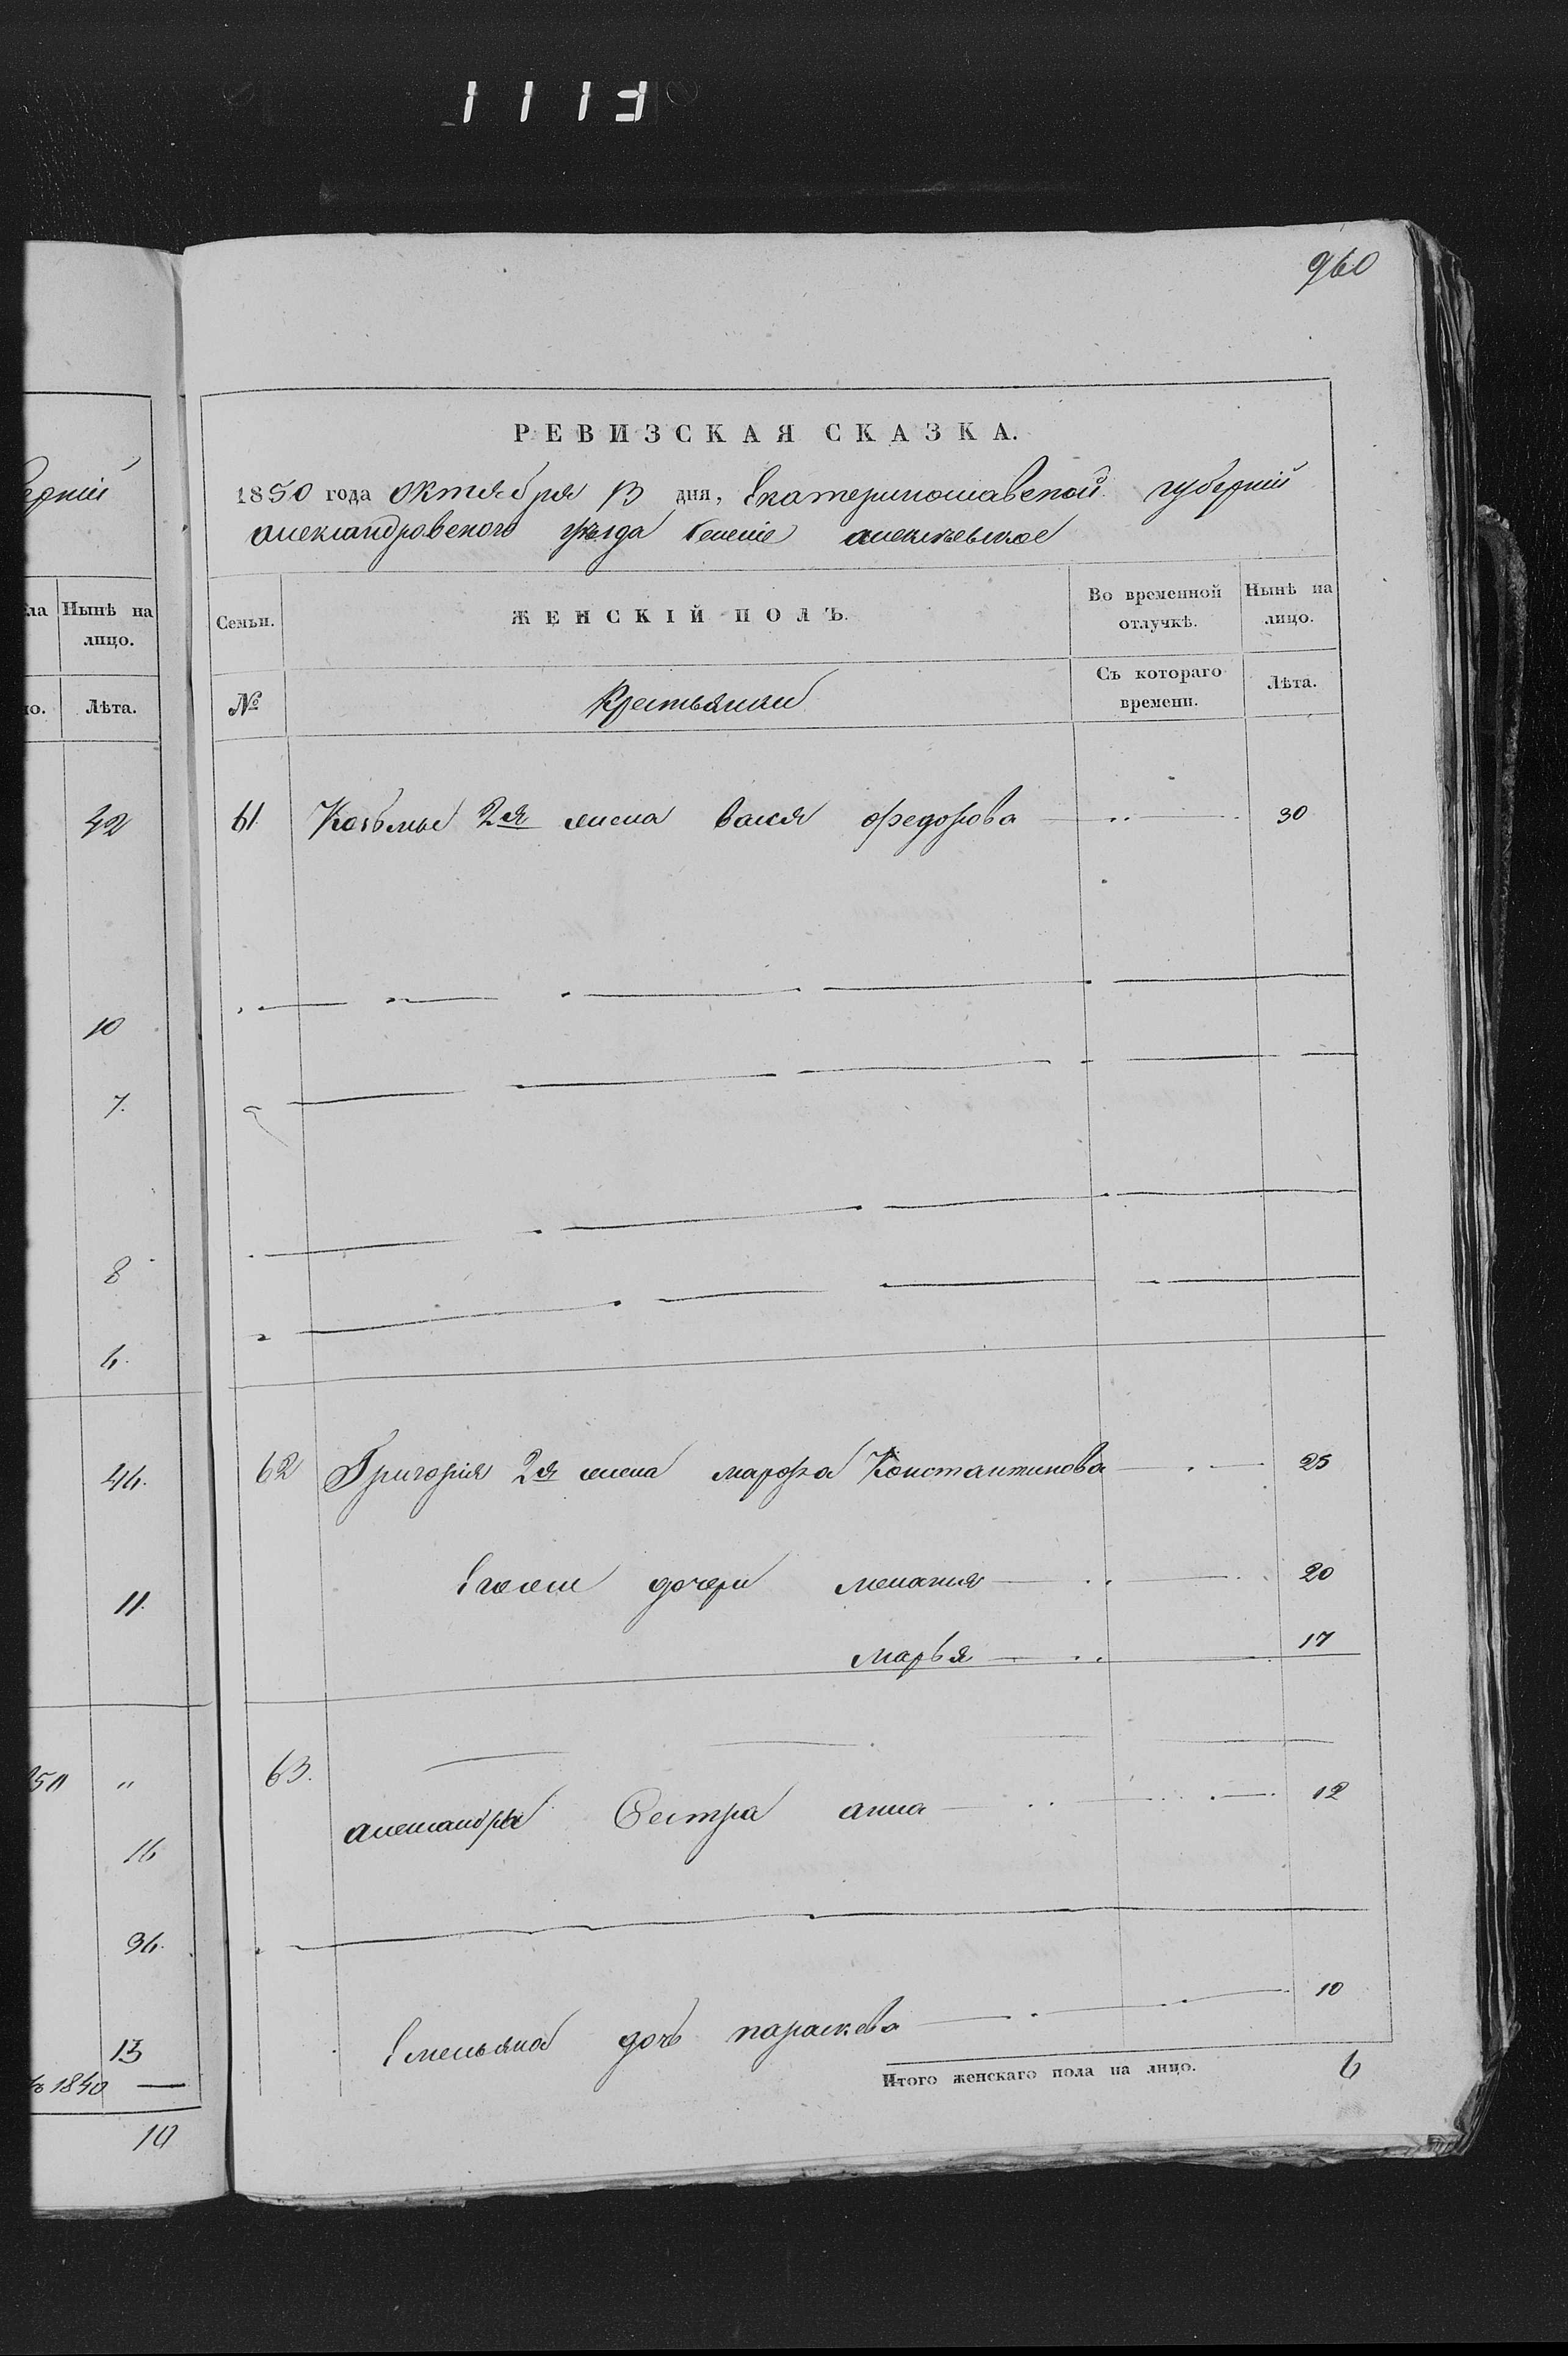 1113
960
РЕВИЗСКАЯ СКАЗКА.
1850 года октября 13 дня, Екатеринославской губерний
александровского уѣзда Селеніе алексѣевское
Нынѣ на лицо.
Лѣта.
42
10
7.
8
6.
46.
11.
"
16
36.
13
1840 —
10
Семьи. ЖЕНСКІЙ ПОЛЪ. Во временной отлучкѣ. Нынѣ на лицо.
№ Крестьянки Съ котораго времени. Лѣта.
61 Козьмы 2я жена Федорова 30
62 Григорія 2я жена марфа Константинова 25
дочери меланья 20
марья 17
63.
александра Сестра анна 12
Емельяна дочь параскева 10
Итого женскаго пола на лицо. 6